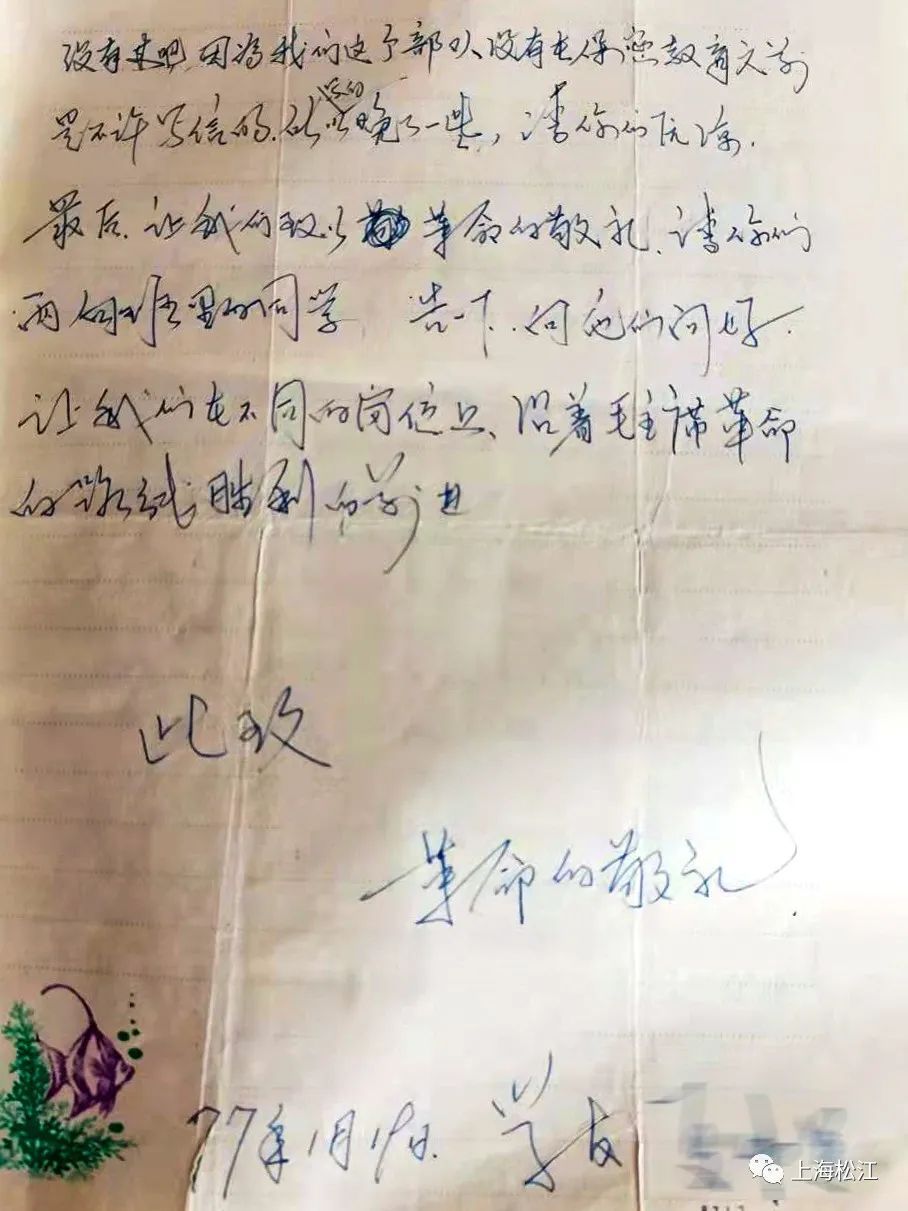 没有其吧，因为我们这个部队没有在保密教育之前
是不许写信的，所以晚了一些，请你们原谅。
最后，让我们致以革命的敬礼，请你们
两向班里的同学，告一下，向他们问好，
让我们在不同的岗位上，沿着毛主席革命
的路线胜利的前进
此致
革命的敬礼
77年1月19日 学友
上海松江